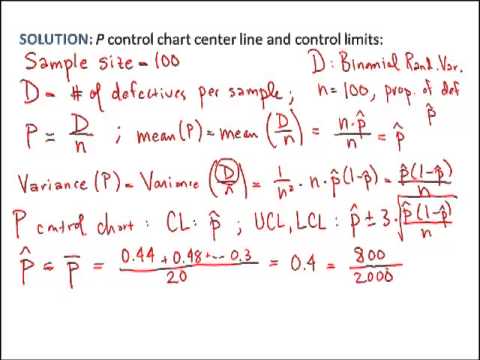 SOLUTION: P control chart center line and control limits:
Sample size = 100
D: Binomial Rand. Var.
D = # of defectives per sample;
n = 100, prop. of def p̂
P = D/n ; mean(P) = mean (D/n) = n·p̂/n = p̂
Variance (P) = Variance (D/n) = 1/n² · n · p̂(1-p̂) = p̂(1-p̂)/n
P control chart: CL: p̂ ; UCL, LCL: p̂ ± 3·√p̂(1-p̂)/n
p̂ = p̄ = 0.44 + 0.48 + ... 0.3/20 = 0.4 = 800/2000